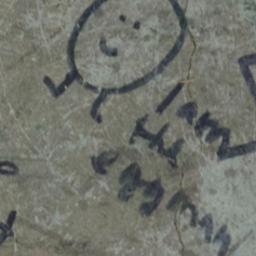 I am
the
egg man